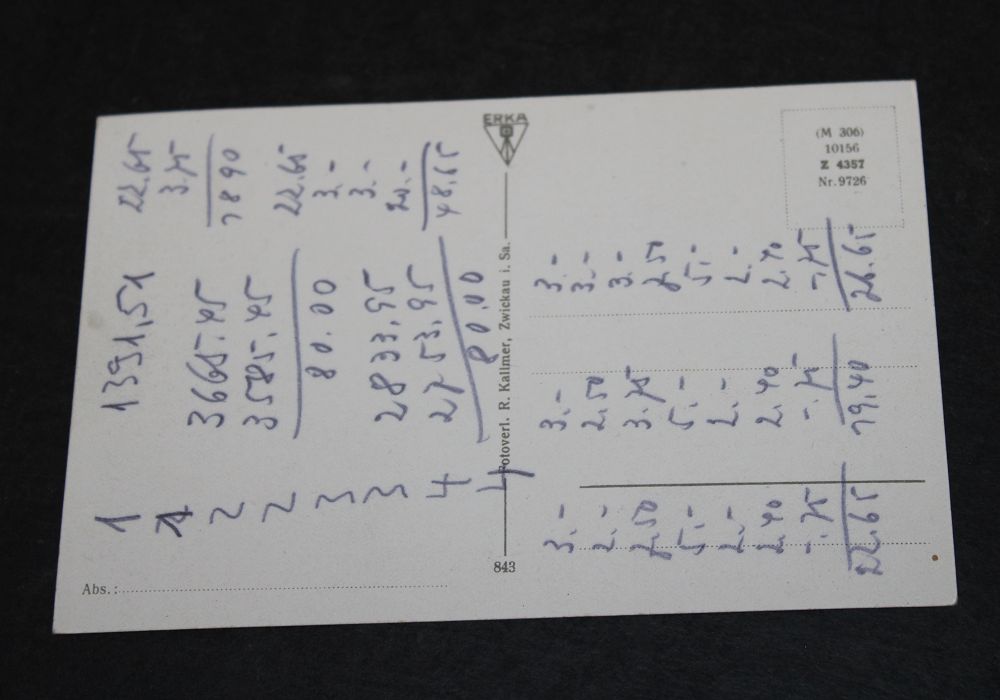 ERKA
(M 306)
10156
Z 4357
Nr. 9726
Fotoverl. R. Kallmer, Zwickau i. Sa.
843
Abs.:
1
1
2
2
3
3
4
4
1391,51
3665.45
3585.45
80.00
2833.95
2753.95
80.00
22.65
3.75
18 90
22.65
3.-
3.-
20.-
48.65
3.-
2.-
7.50
5.-
2.-
2.40
-.75
22.65
3.-
2.50
3.75
5.-
2.-
2.40
-.75
19.40
3.-
3.-
3.-
7.50
5.-
2.-
2.40
-.75
26.65